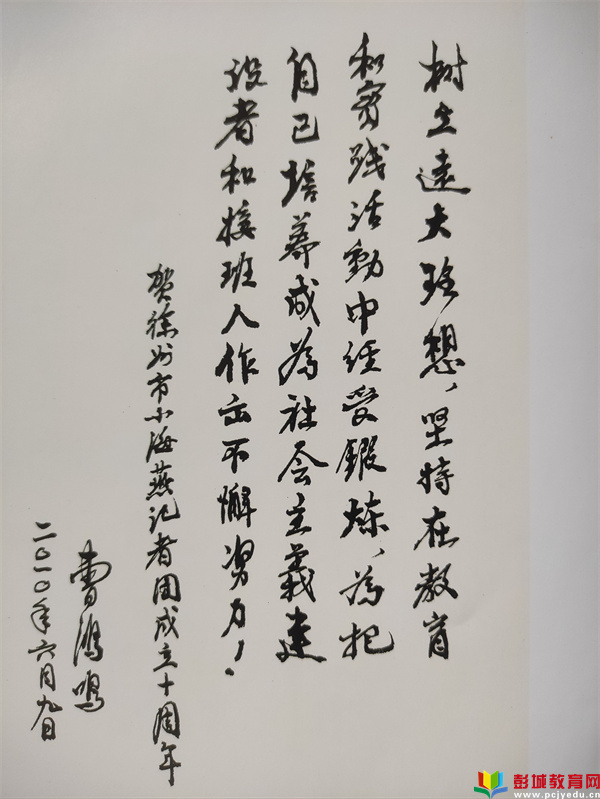 树立遠大理想，坚持在教育
和实践活動中经受锻炼，为把
自己培养成为社会主義建
设者和接班人作出不懈努力！
贺徐州市小海燕记者团成立十周年
曹鸿鸣
二〇一〇年六月九日
彭城教育网
www.pcjyedu.cn